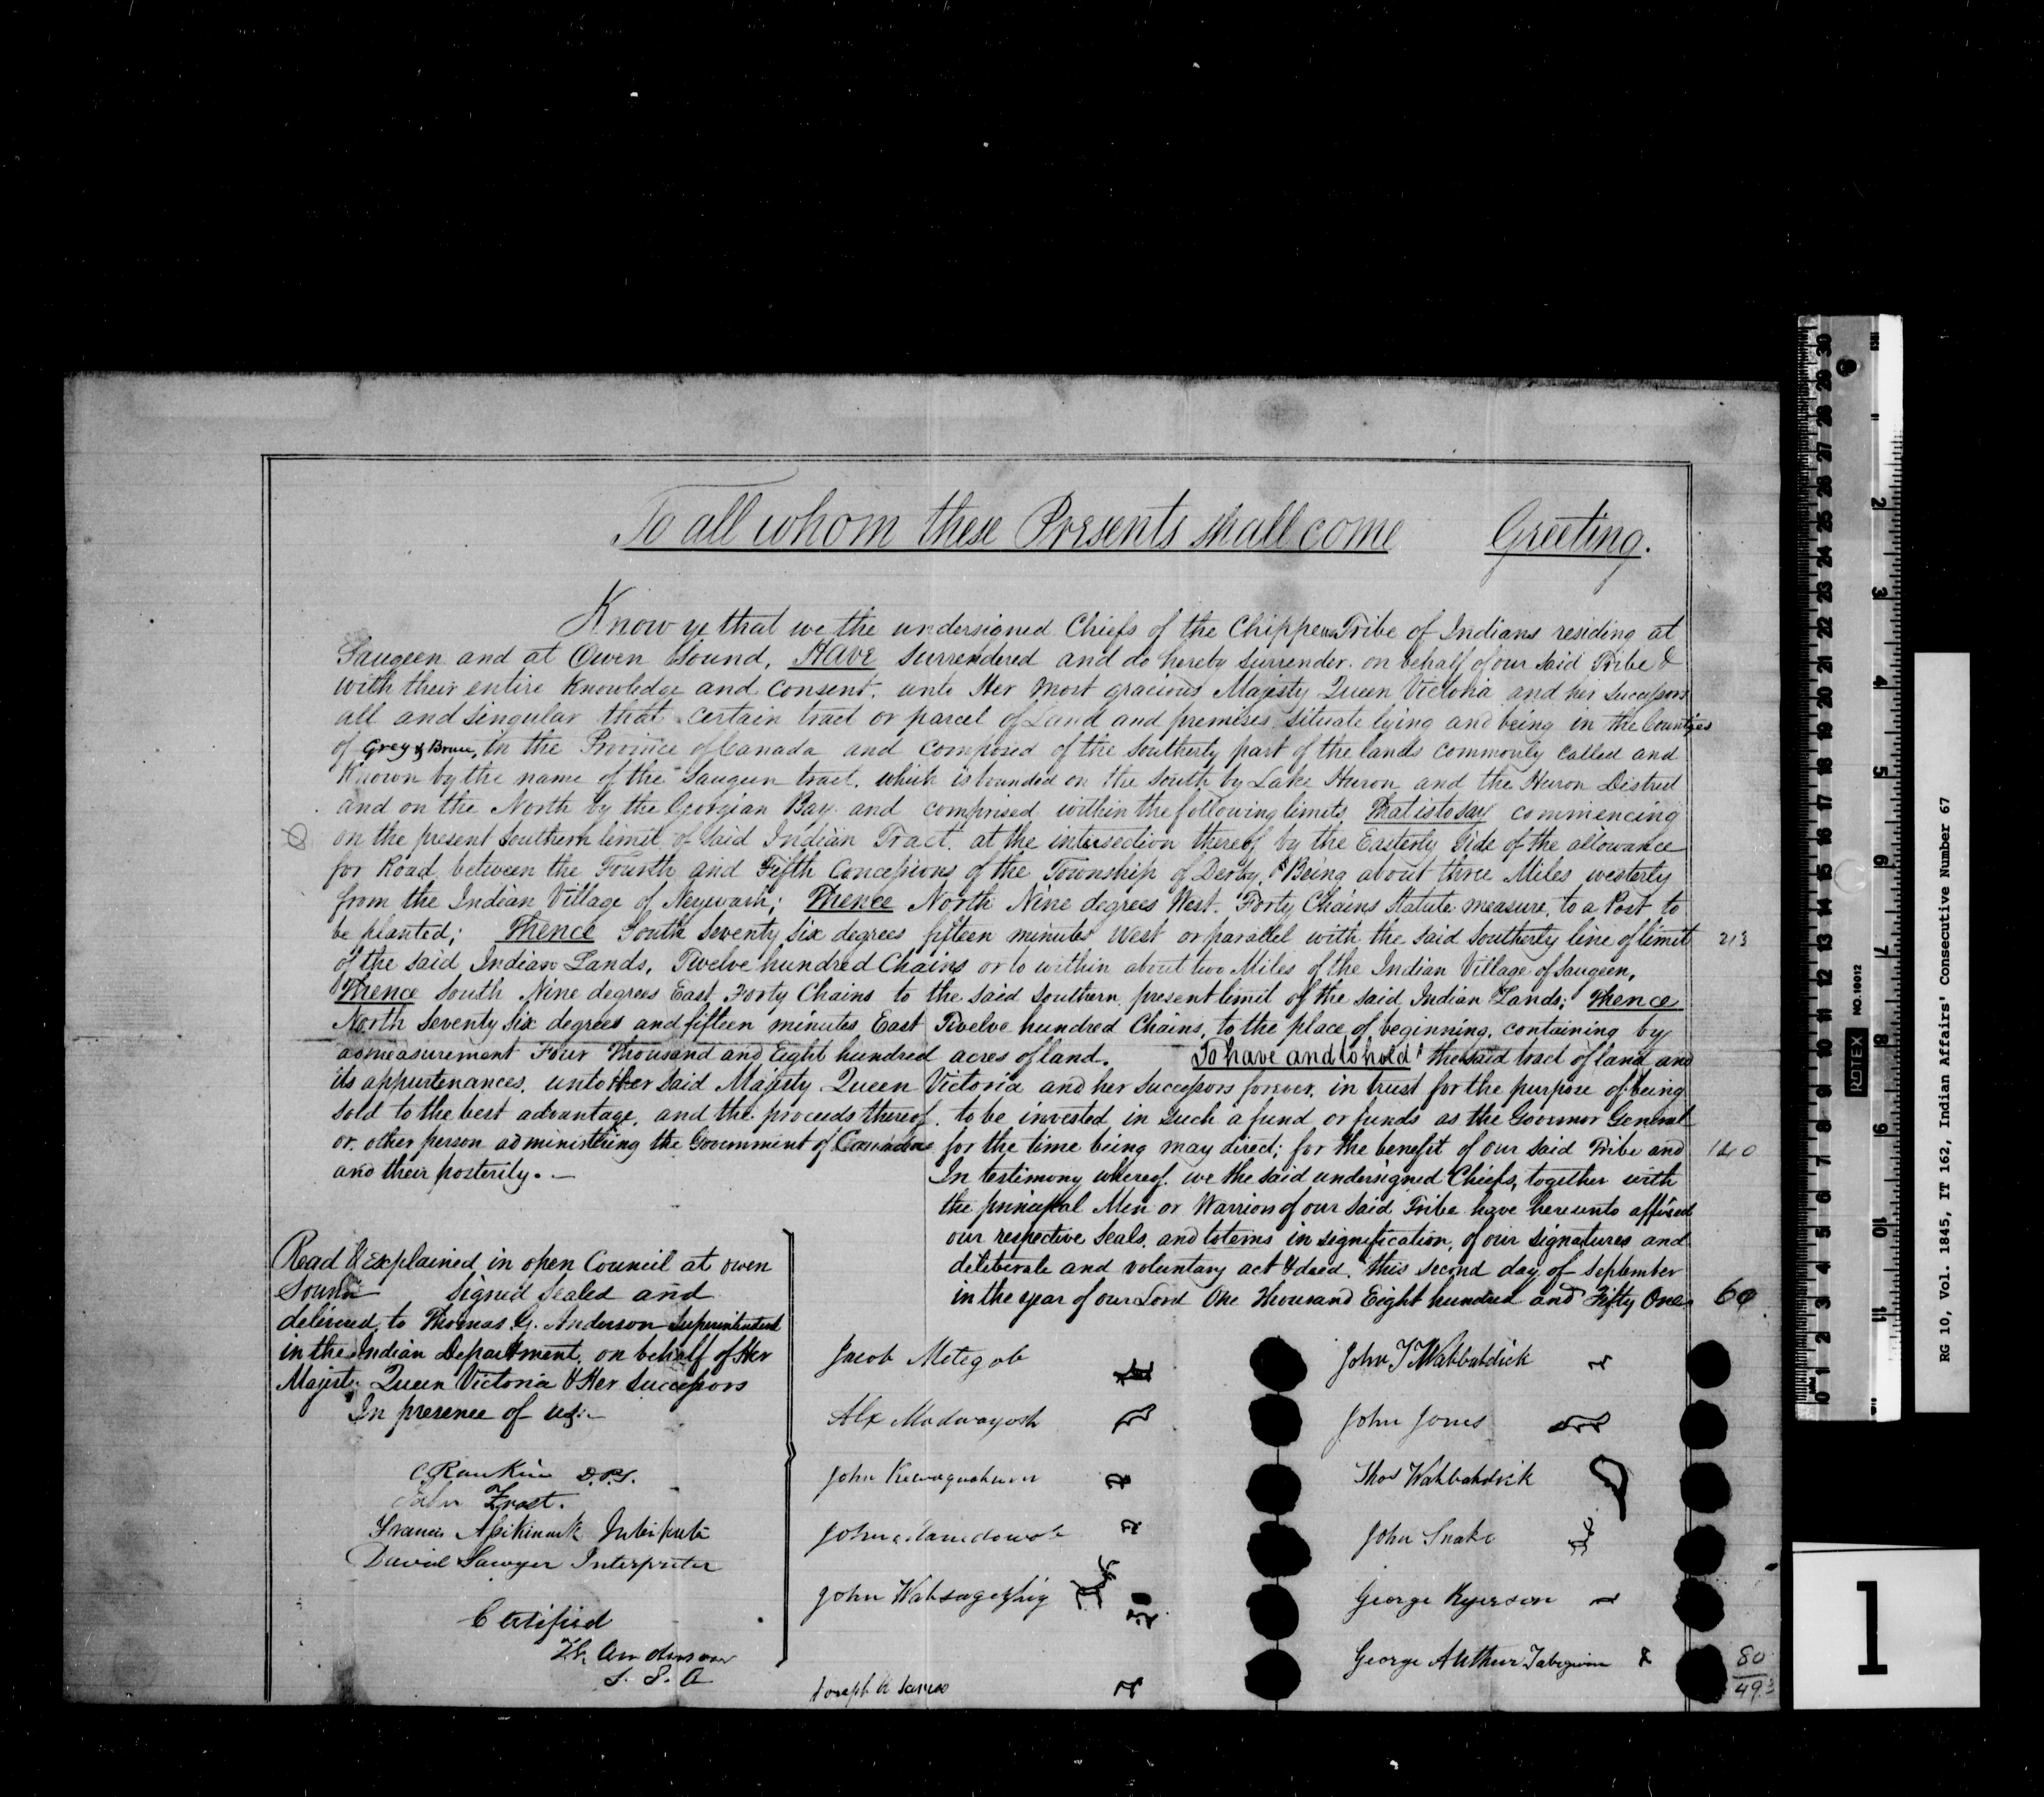 To all whom these Presents shall come Greeting.
Know ye that we the undersigned Chiefs of the Chippewa Tribe of Indians residing at
Saugeen and at Owen Sound, Have surrendered and do hereby surrender on behalf of our said Tribe &
with their entire knowledge and consent. unto Her most gracious Majesty Queen Victoria and her successors
all and singular that certain tract or parcel of Land and premises situate lying and being in the Counties
of Grey & Bruce, in the Province of Canada and composed of the southerly part of the lands commonly called and
known by the name of the Saugeen tract. which is bounded on the South by Lake Huron and the Huron District
and on the North by the Georgian Bay and comprised within the following limits That is to say commencing
on the present Southern limit of said Indian Tract. at the intersection thereof by the Easterly side of the allowance
for Road between the Fourth and Fifth Concessions of the Township of Derby, Being about three Miles westerly
from the Indian Village of Neywash; Thence North Nine degrees West. Forty Chains Statute measure, to a Post to
be planted; Thence South Seventy six degrees fifteen minutes West or parallel with the said southerly line of limit 213
of the said Indian Lands, Twelve hundred Chains or to within about two Miles of the Indian Village of Saugeen,
Thence South Nine degrees East Forty Chains to the said southern present limit of the said Indian Lands; Thence
North Seventy six degrees and fifteen minutes East Twelve hundred Chains, to the place of beginning, containing by
admeasurement Four Thousand and Eight hundred acres of land. To have and to hold the said tract of land and
its appurtenances. unto Her said Majesty Queen Victoria and her successors forever. in trust for the purpose of being
sold to the best advantage, and the proceeds thereof. to be invested in such a fund or funds as the Governor General
or other person administering the Government of Canada for the time being may direct; for the benefit of our said Tribe and 140
and their posterity. —
In testimony whereof. we the said undersigned Chiefs, together with
the principal Men or Warriors of our said Tribe have hereunto affixed
our respective seals. and totems in signification, of our signatures and
deliberate and voluntary act & deed. this second day of September
in the year of our Lord One Thousand Eight hundred and Fifty One 60
Read & explained in open Council at Owen
Sound Signed Sealed and
delivered to Thomas G. Anderson Superintendent
in the Indian Department. on behalf of Her
Majesty Queen Victoria & Her Successors
In presence of us:—
C Rankin D.P.S.
John Frost.
Francis Assikinack Interpreter
David Sawyer Interpreter
Certified
T G Anderson
S. I. A
Jacob Metegob
Alx Madwayosh
John Kewaquahum
John Manedowob
John Wahsagezhig
Joseph K James
John T Wahbahdick
John Jones
Thos Wahbahdick
John Snake
George Ryerson
George Arthur Tabegwun
80
49.3
RG 10, Vol. 1845, IT 162, Indian Affairs' Consecutive Number 67
ROTEX NO.10012
0 1 2 3 4 5 6 7 8 9 10 11 12 13 14 15 16 17 18 19 20 21 22 23 24 25 26 27 28 29 30
1 2 3 4 5 6 7 8 9 10 11
1